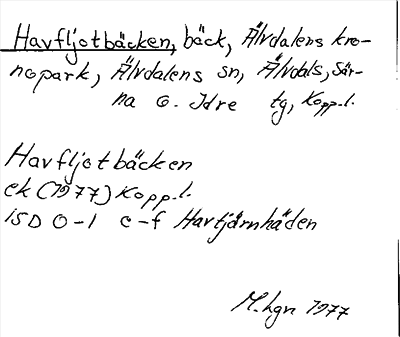 Havfljotbäcken, bäck, Älvdalens kro-
nopark, Älvdalens sn, Älvdals, Sär-
na o. Idre tg, Kopp.l.
Havfljotbäcken
ek (1977) Kopp.l.
15D 0-1 c-f Havtjärnhäden
M.hgn 1977